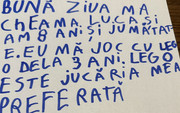 BUNĂ ZIUA MĂ
CHEAMĂ LUCA ȘI
AM 8 ANI ȘI JUMĂTAT
E. EU MĂ JOC CU LEG
O DELA 3 ANI. LEGO
ESTE JUCĂRIA MEA
PREFERATĂ